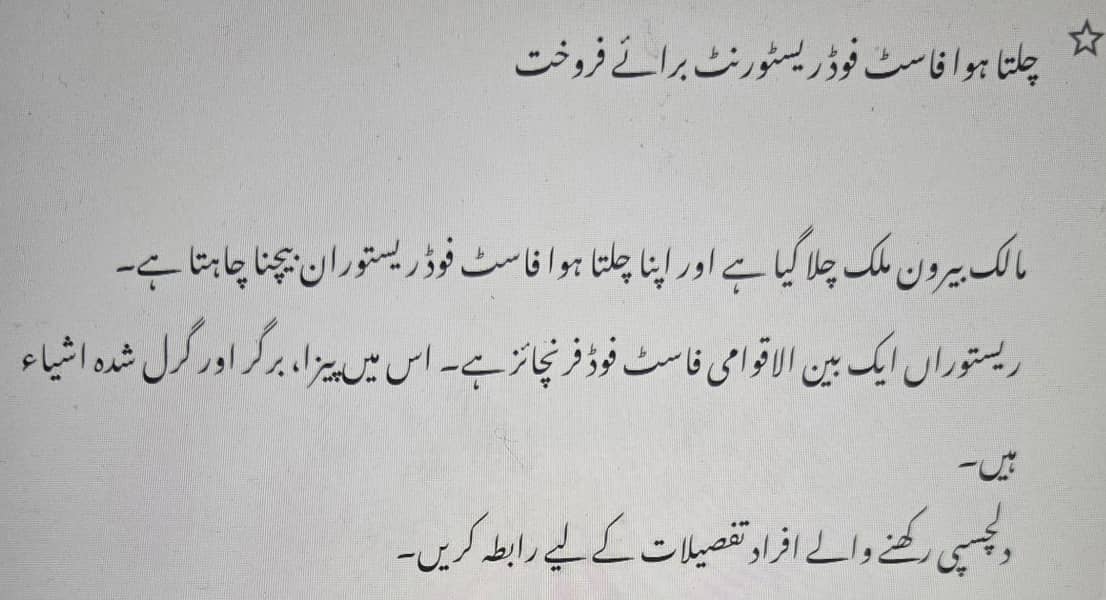 چلتا ہوا فاسٹ فوڈ ریسٹورنٹ برائے فروخت
مالک بیرون ملک چلا گیا ہے اور اپنا چلتا ہوا فاسٹ فوڈ ریستوران بیچنا چاہتا ہے۔
ریستوراں ایک بین الاقوامی فاسٹ فوڈ فرنچائز ہے۔ اس میں پیزا، برگر اور گرل شدہ اشیاء
ہیں۔
دلچسپی رکھنے والے افراد تفصیلات کے لیے رابطہ کریں۔